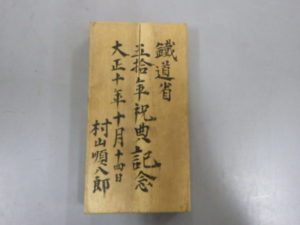 鐵道省
五拾年祝典記念
大正十年十月十四日
村山順八郎